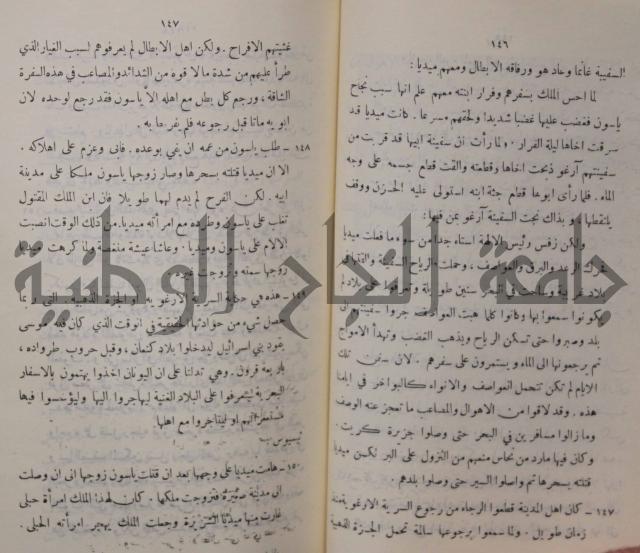 ١٤٦
السفينة غانما وعاد هو ورفاقه الابطال ومعهم ميديا :
لما احس الملك بسفرهم وفرار ابنته معهم علم انها سبب نجاح
ياسون فغضب عليها غضبا شديدا ولحقهم مسرعا . كانت ميديا قد
سرقت اخاها ليلة الفرار ، ولما رأت ان سفينة ابيها قد قربت من
سفينتهم آرغو ذبحت اخاها وقطعته والقت قطع جسمه على وجه
الماء . فلما رأى ابوها قطع جثة ابنه استولى عليه الحزن ووقف
يلتقطها وبذاك نجت السفينة آرغو بمن فيها :
ولكن زفس رئيس الالهة استاء جدا من سوء ما فعلت ميديا
فحرك الرعد والبرق والعواصف ، وحملت الرياح السفينة
بلاد غريبة وساحت في البحر سنين طويلة
يكونوا سمعوا بها وكانوا كلما هبت العواصف جروا سفينتهم الى
بلد وصبروا حتى تسكن الرياح ويذهب الغضب وتهدأ الامواج
ثم يرجعونها الى الماء ويستمرون على سفرهم . لان سفن تلك
الايام لم تكن تتحمل العواصف والانواء كالبواخر في ايامنا
هذه . وقد لاقوا من الاهوال والمصاعب ما تعجز عنه الوصف
وما زالوا مسافرين في البحر حتى وصلوا جزيرة كريت .
وكان فيها مارد من نحاس منعهم من النزول على البر لكن ميديا
قتلته بسحرها ثم واصلوا السير حتى وصلوا بلدهم .
١٤٧ – كان اهل المدينة قطعوا الرجاء من رجوع السرية الارغوية منذ
زمان طويل . ولما سمعوا برجوعها سالمة تحمل الجزة الذهبية
١٤٧
غشيتهم الافراح . ولكن اهل الابطال لم يعرفوهم لسبب الغيار الذي
طرأ عليهم من شدة ما لاقوه من الشدائد والمصاعب في هذه السفرة
الشاقة ، ورجع كل بطل مع اهله الا ياسون فقد رجع لوحده لان
ابويه ماتا قبل رجوعه فلم يفرحا به .
١٤٨ – طلب ياسون من عمه ان يفي بوعده . فابى وعزم على اهلاكه .
الا ان ميديا قتلته بسحرها وصار زوجها ياسون ملكا على مدينة
ابيه . لكن الفرح لم يدم لهما طويلا فان ابن الملك المقتول
تغلب على ياسون وطرده مع امرأته ميديا . من ذلك الوقت انصبت
الالام على ياسون وميديا . وعاشا عيشة منغصة ولذا كرهت ميديا
زوجها
١٤٩ – هذه هي حكاية السرية الارغوية او الجزة الذهبية التي ربما
حصل شيء من حوادثها الحقيقية في الوقت الذي كان فيه موسى
يقود بني اسرائيل ليدخلوا بلاد كنعان ، وقبل حروب طرواده ،
وهي تدلنا على ان اليونان اخذوا يهتمون بالاسفار
البحرية ليتعرفوا على البلاد الغنية ليهاجروا اليها وليؤسسوا فيها
او ليتاجروا مع اهلها .
تيسيوس
١٥٠ – هامت ميديا على وجهها بعد ان قتلت ياسون زوجها الى ان وصلت
الى مدينة فتزوجت ملكها . كان لهذا الملك امرأة حبلى
غارت منها ميديا الشريرة وجعلت الملك يهجر امرأته الحبلى .
جامعة النجاح الوطنية